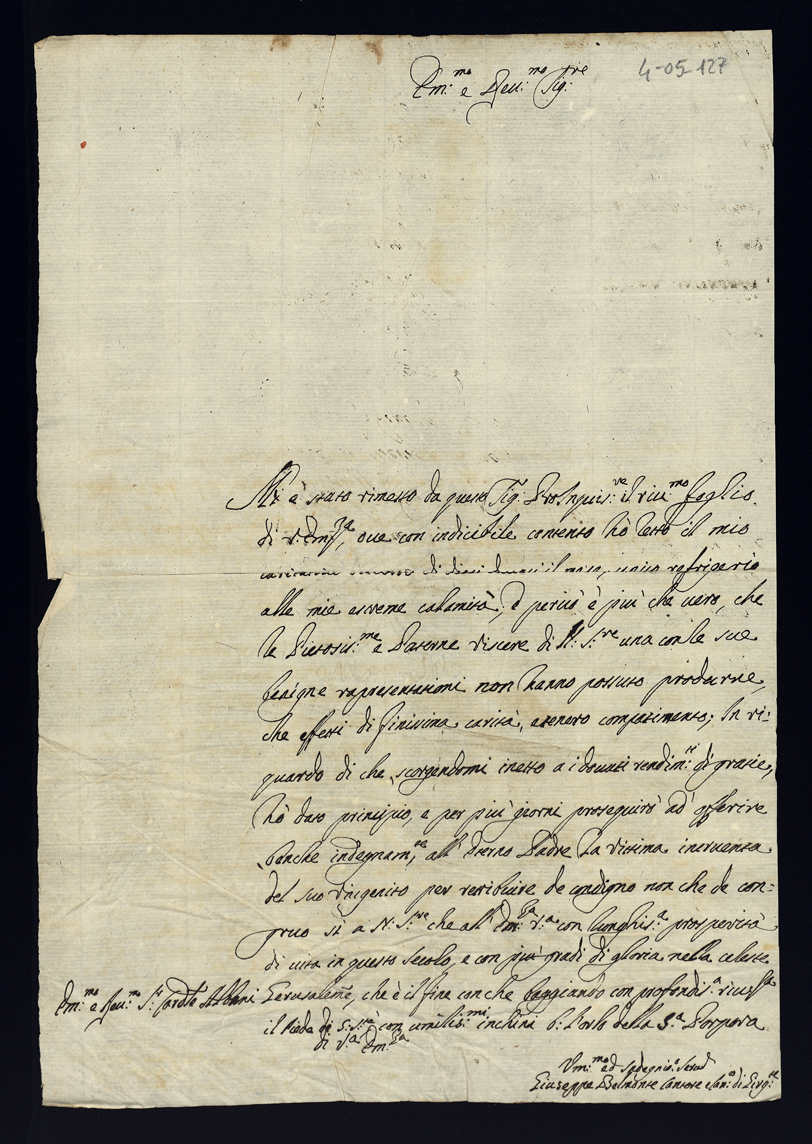 4-05-127
Em:mo e Reu:mo Sig:re
Mi è stato rimesso da questo Sig: ProInquis:re il riu:mo foglio
di V: Em:za, oue con indicibile contento hò letto il mio
di dieci scudi il mese, unico refrigerio
alle mie estreme calamità, e perciò è più che uero, che
le Pietosis:me e Paterne viscere di N: S:re una con le sue
benigne rapresentationi non hanno possuto produrne,
che effetti di finissima carità, e tenero compatimento; In ri=
guardo di che, scorgendomi inetto a i douuti rendim:ti di gratie,
hò dato principio, e per più giorni proseguirò ad' offerire
benche indegnam:te, all' Eterno Padre la Vittima incruenta
del suo Unigenito per retribuire de condigno non che de con=
gruo sì a N: S:re che all' Em:za V:a con lunghis:a prosperità
di uita in questo Secolo, e con più gradi di gloria nella celeste
Gerusaleme, che è il fine con che baggiando con profondis:a riuer:za
il Piede di S: S:tà con umilis:mi inchini l' Orlo della S:a Porpora
di V:a Em:za
Em:mo e Reu:mo S:r Cardle Albani
Um:mo ed Seru:
Giuseppe Belmonte Cantore e Can:o di Girg:ti